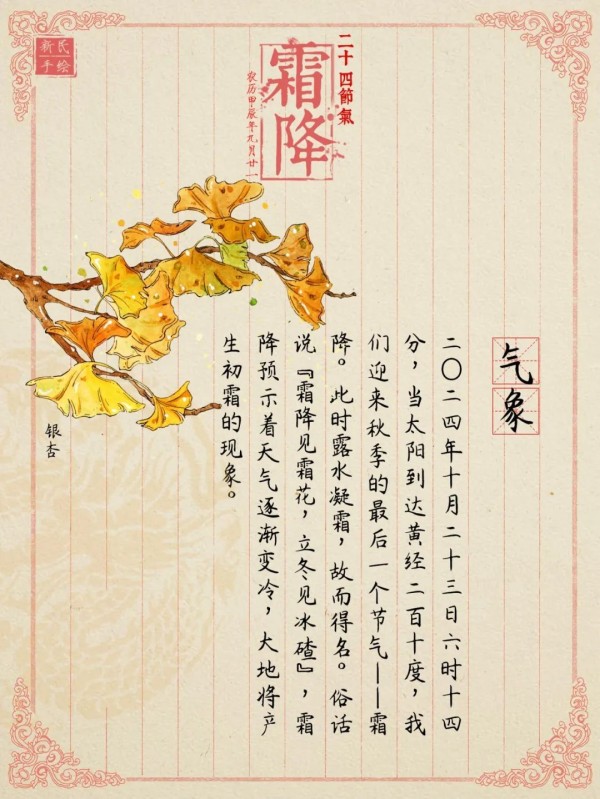 新氏
手绘
二十四節氣
霜降
农历甲辰年九月廿一
气象
二〇二四年十月二十三日六时十四
分，当太阳到达黄经二百十度，我
们迎来秋季的最后一个节气——霜
降。此时露水凝霜，故而得名。俗话
说『霜降见霜花，立冬见冰碴』，霜
降预示着天气逐渐变冷，大地将产
生初霜的现象。
银杏